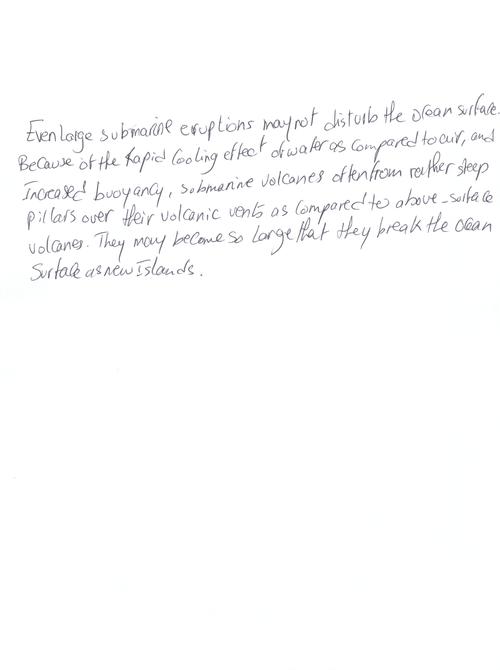 Even large submarine eruptions may not disturb the ocean surface.
Because of the rapid cooling effect of water as compared to air, and
Increased buoyancy, submarine volcanoes often from rather steep
pillars over their volcanic vents as compared to above-surface
volcanoes. They may become so large that they break the ocean
Surface as new Islands.